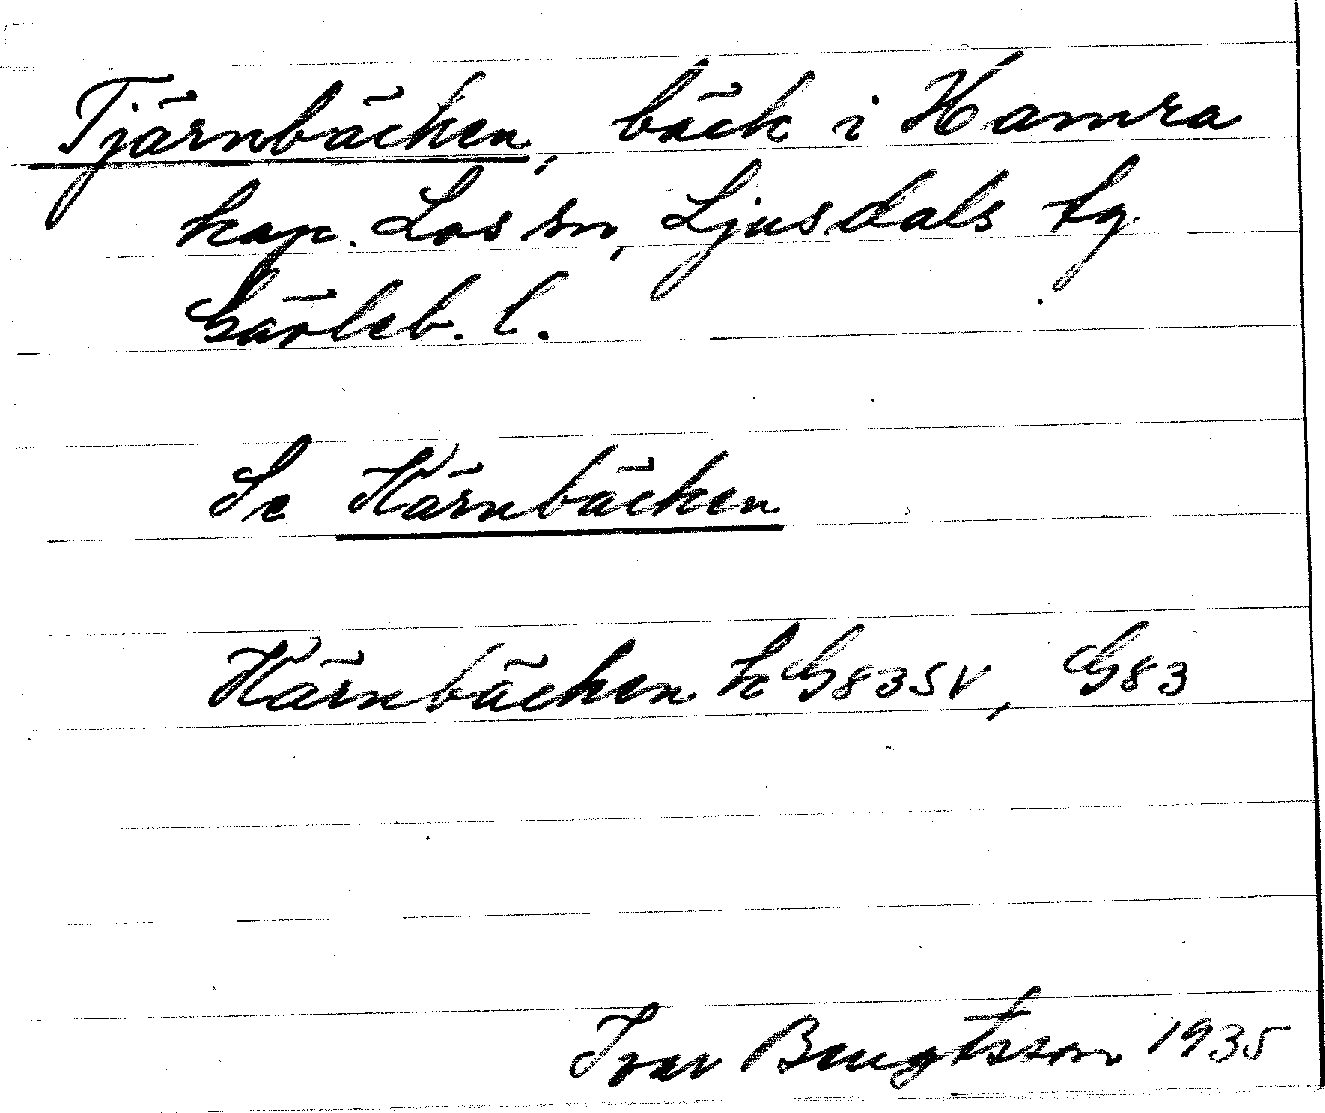 Tjärnbäcken, bäck i Hamra
kap. Los sn, Ljusdals tg
Gävleb. l.
Se Kärnbäcken
Kärnbäcken k G83SV, G83
Ivar Bengtsson 1935